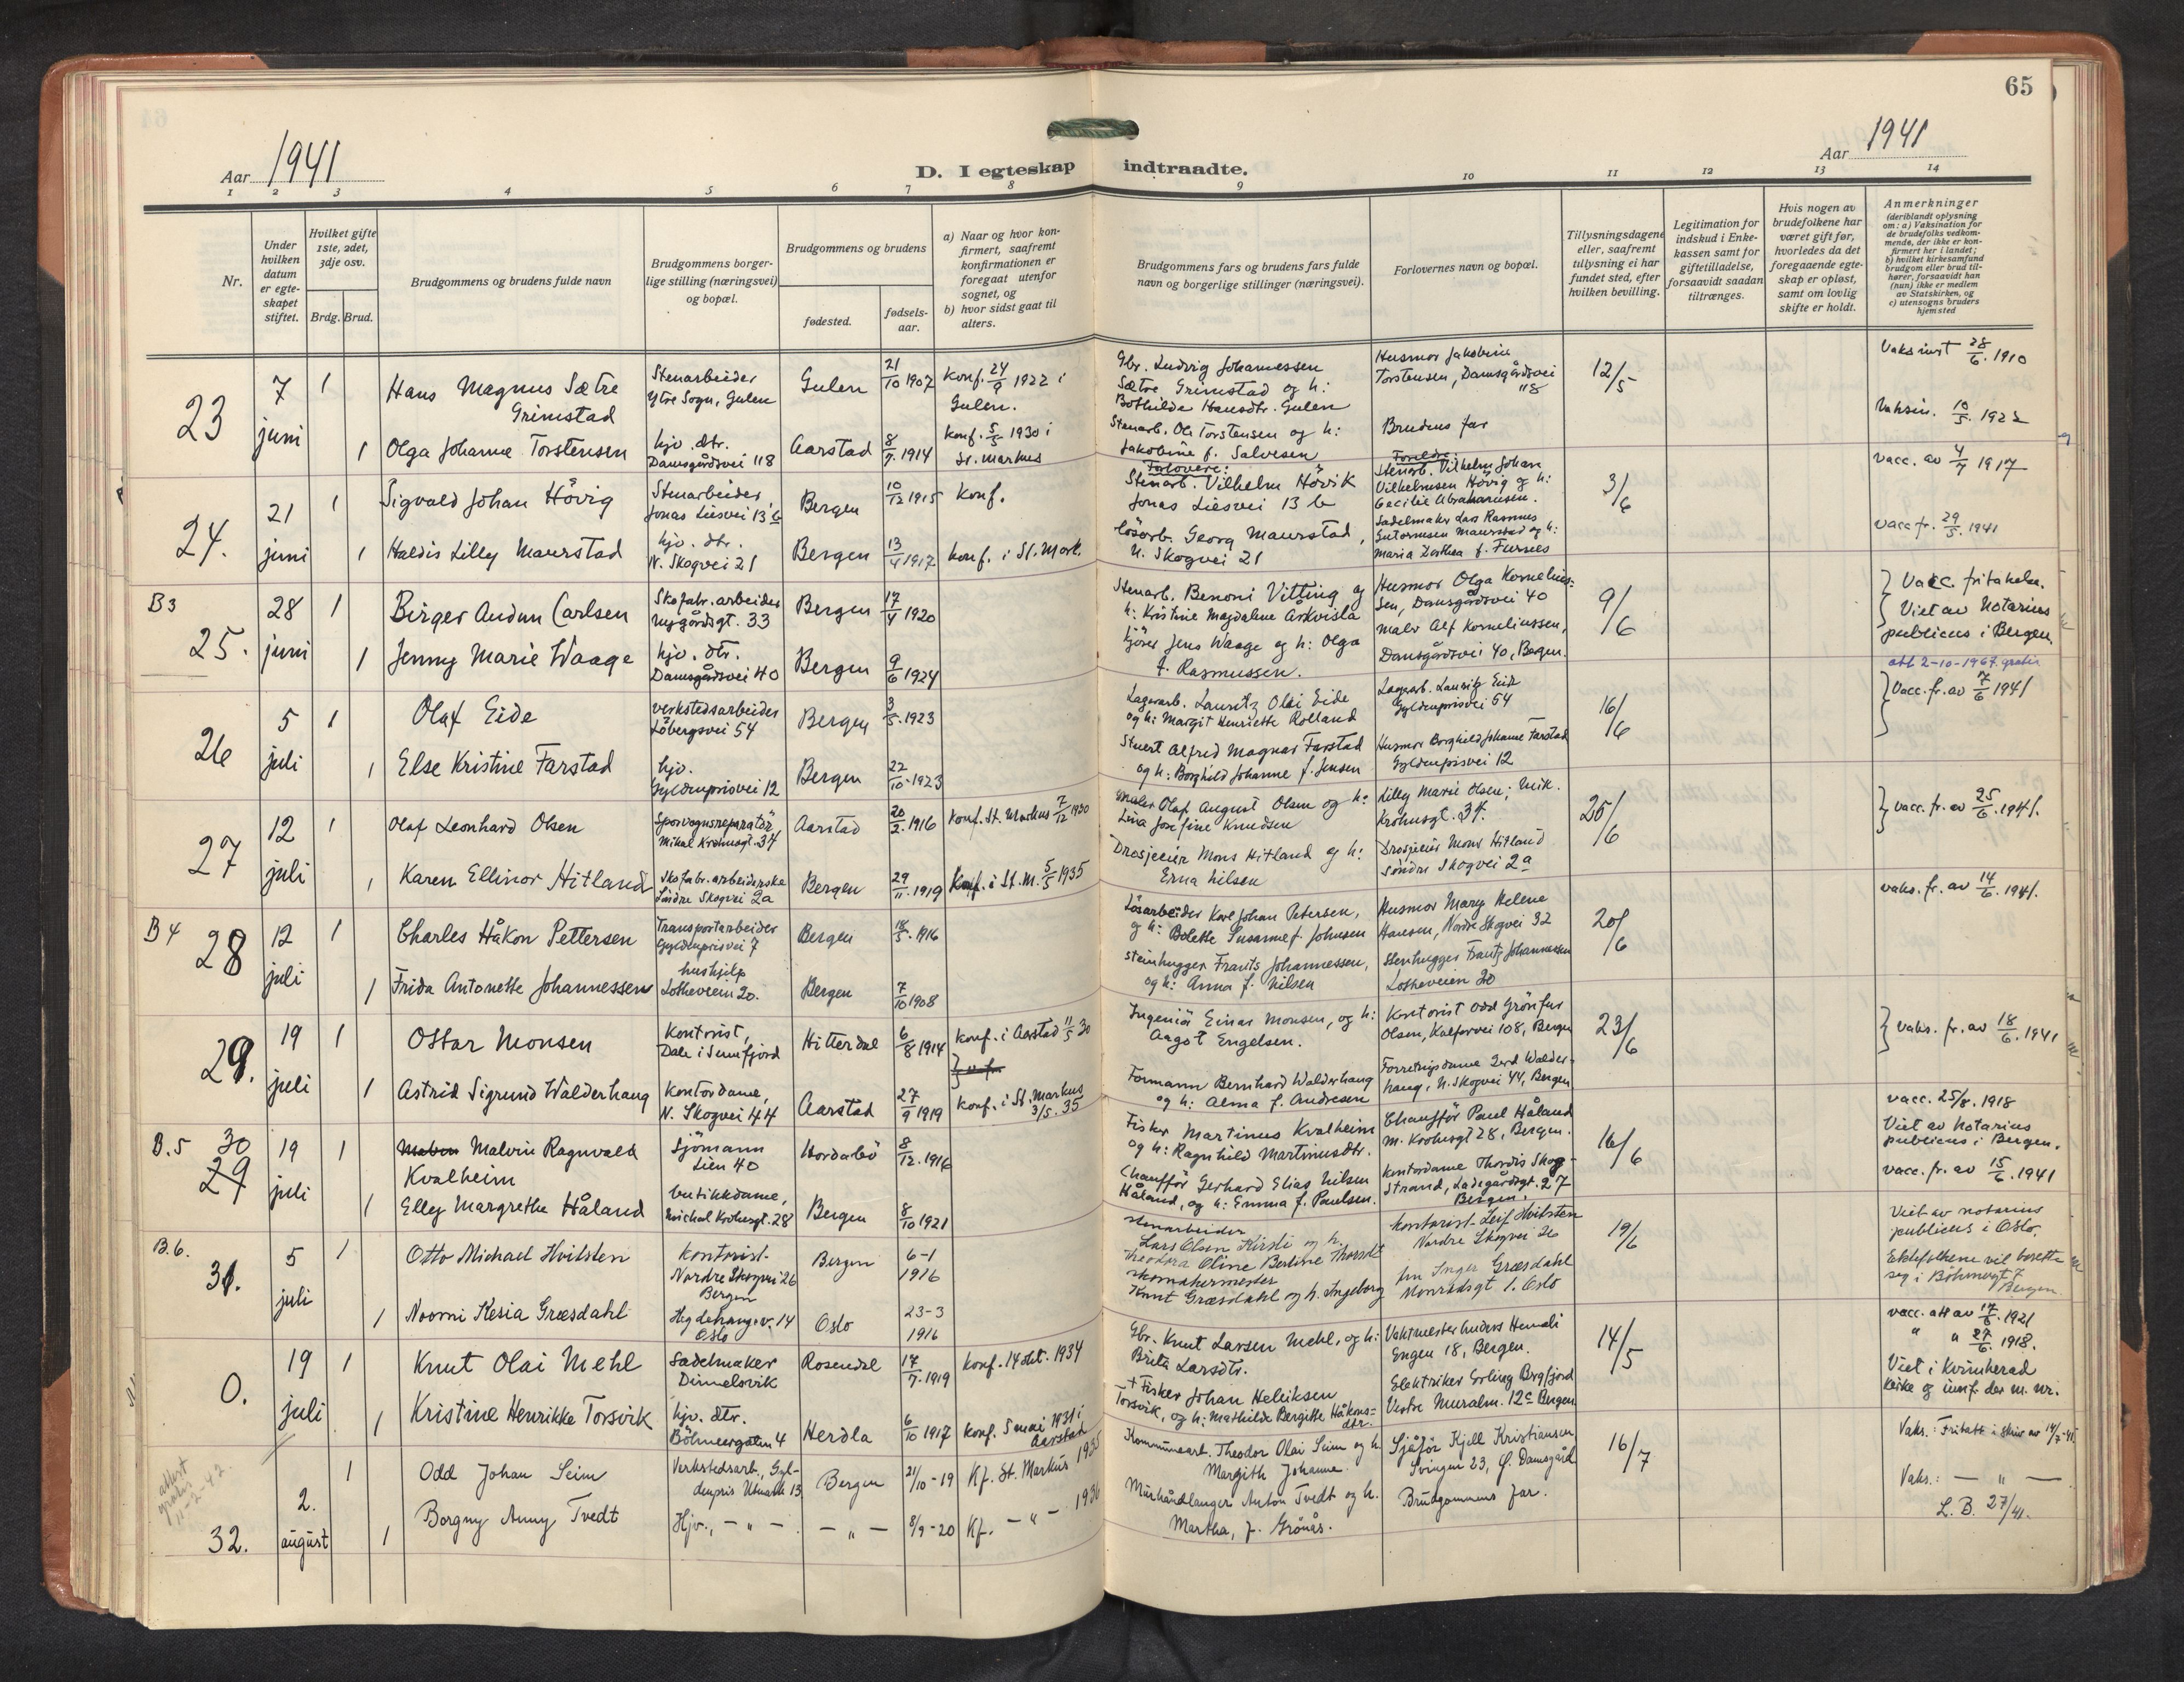 65
Aar 1941
D. I egteskap indtraadte.
Aar 1941
1 2 3 4 5 6 7 8 9 10 11 12 13 14
Nr.
Under hvilken datum er egteskapet stiftet.
Hvilket gifte 1ste, 2det, 3dje osv.
Brdg. Brud.
Brudgommens og brudens fulde navn
Brudgommens borgerlige stilling (næringsvei) og bopæl.
Brudgommens og brudens
fødested.
fødselsaar.
a) Naar og hvor konfirmert, saafremt konfirmationen er foregaat utenfor sognet, og
b) hvor sidst gaat til alters.
Brudgommens fars og brudens fars fulde navn og borgerlige stillinger (næringsvei).
Forlovernes navn og bopæl.
Tillysningsdagene eller, saafremt tillysning ei har fundet sted, efter hvilken bevilling.
Legitimation for indskud i Enkekassen samt for giftetilladelse, forsaavidt saadan tiltrænges.
Hvis nogen av brudefolkene har været gift før, hvorledes da det foregaaende egteskap er opløst, samt om lovlig skifte er holdt.
Anmerkninger (deriblandt oplysning om: a) Vaksination for de brudefolks vedkommende, der ikke er konfirmert her i landet; b) hvilket kirkesamfund brudgom eller brud tilhører, forsaavidt han (nun) ikke er medlem av Statskirken, og c) utensogns bruders hjemsted
23
7 juni
1
Hans Magnus Sætre Grimstad
Stenarbeider
Ytre Sogn, Gulen
Gulen
21/10 1907
Konf. 24/9 1922 i Gulen.
Gbr. Ludvig Johannessen
Sætre Grimstad og h:
Bothilde Hansdtr. Gulen
Husmor Jakobine
Torstensen, Damsgårdsvei 118
12/5
Vaks. 28/6. 1910
1
Olga Johanne Torstensen
hjv. dtr.
Damsgårdsvei 118
Aarstad
8/7. 1914
Konf. 5/5 1930 i St. Markus
Stenarb. Ole Torstensen og h:
Jakobine f. Salvesen
Brudens far
Vaksin. 10/5. 1922
24.
21 juni
1
Sigvald Johan Hövig
Stenarbeider,
Jonas Liesvei 13 b
Bergen
10/12 1915
Konf.
Forlovere:
Stenarb. Vilhelm Hövik
Jonas Liesvei 13 b
Foreldre:
Stenarb. Vilhelm Johan
Vilhelmsen Hövig og h:
Cecilie Abrahamsen.
3/6
vacc. av 4/7 1917
1
Haldis Lilly Maurstad
hjv. dtr.
N. Skogvei 21
Bergen
13/4 1917
Konf. i St. Mark.
Lösarb. Georg Maurstad,
N. Skogvei 21
Sadelmaker Lars Rasmus
Gutormsen Maurstad og h:
Maria Dorthea f. Furnes
vacc fr. 29/5. 1941
B3
25.
28 juni
1
Birger Audun Carlsen
Skofabr. arbeider
Nygårdsgt. 33
Bergen
17/4 1920
Stenarb. Benoni Vitting og
h: Kristine Magdalene Arkvisla
Husmor Olga Kornelius=
sen, Damsgårdsvei 40
9/6
Vacc. fritakelse.
Viet av Notarius
publicus i Bergen
1
Jenny Marie Waage
hjv. dtr.
Damsgårdsvei 40
Bergen
9/6 1924
Kjörer Jens Waage og h: Olga
f. Rasmussen.
Maler Alf Korneliussen,
Damsgårdsvei 40, Bergen.
att 2-10-1967 gratis
26
5 juli
1
Olaf Eide
verkstedsarbeider
Löbergsvei 54
Bergen
3/5. 1923
Lagerarb. Lauritz Olai Eide
og h: Margit Henriette Rolland
Lagerarb. Lauritz Eide
Gyldenprisvei 54
16/6
Vacc. fr. av 7/6 1941
1
Else Kristine Farstad
hjv.
Gyldenprisvei 12
Bergen
22/10. 1923
Stuert Alfred Magnar Farstad
og h: Borghild Johanne f. Jensen
Husmor Borghild Johanne Farstad
Gyldenprisvei 12
27
12 juli
1
Olaf Leonhard Olsen
Sporvognsreparatör
Mikal Krohnsgt. 34
Aarstad
20/2. 1916
Konf. St. Markus 7/12 1930
Maler Olaf August Olsen og h:
Lina Josefine Knudsen
Lilly Marie Olsen; Mik.
Krohnsgt. 34.
25/6
vacc. fr. av 25/6. 1941.
1
Karen Ellinor Hitland
Skofabr. arbeiderske
Söndre Skogvei 2a
Bergen
29/11. 1919
Konf. i St. M. 5/5 1935
Drosjeeier Mons Hitland og h:
Erna Nilsen
Drosjeeier Mons Hitland
Söndre Skogvei 2a
B4
28
12 juli
1
Charles Håkon Pettersen
Transportarbeider
Gyldenprisvei 7
Bergen
18/5. 1916
Lösarbeider Karl Johan Petersen,
og h: Bolette Susanne f. Johnsen
Husmor Mary Helene
Hansen, Nordre Skogvei 32
20/6
vaks. fr. av 14/6. 1941.
1
Frida Antonette Johannessen
hushjelp
Lotheveien 20.
Bergen
7/10 1908
Steinhugger Frants Johannessen,
og h: Anna f. Nilsen
Stenhugger Frantz Johannessen
Lotheveien 20
29.
19 juli
1
Ottar Monsen
Kontorist,
Dale i Sunnfjord
Hitterdal
6/8 1914
Konf. i Aarstad 11/5 30
Ingeniör Einar Monsen, og h:
Aagot Engelsen.
Kontorist Odd Grönfur
Olsen, Kalfarvei 108, Bergen
23/6
vaks. fr. av 18/6. 1941
1
Astrid Sigrund Walderhaug
Kontordame,
N. Skogvei 44
Aarstad
27/9 1919
Konf. i St. Markus
3/5. 35
Formann Bernhard Walderhaug
og h: Alma f. Andresen
Forretningsdame Gerd Walder-
haug, N. Skogvei 44, Bergen
B.5
30
29
19 juli
1
Malvin Ragnvald
Kvalheim
Sjömann
Lien 40
Hordabö
8/12. 1916
Fisker Martinus Kvalheim
og h: Ragnhild Martinusdtr.
Chaufför Paul Håland
M. Krohnsgt 28, Bergen.
16/6
vacc. 25/8. 1918
Viet av Notarius
publicus i Bergen.
1
Elly Margrethe Håland
butikkdame,
Michal Krohnsgt. 28
Bergen
8/10 1921
Chaufför Gerhard Elias Nilsen
Håland, og h: Emma f. Paulsen.
Kontordame Thordis Skog-
Strand, Ladegårdsgt. 27
Bergen.
vacc. fr. av 15/6. 1941
B.6.
31.
5 juli
1
Otto Michael Hvitsten
Kontorist.
Nordre Skogvei 26
Bergen
Bergen
6-1
1916
Stenarbeider
Lars Olsen Kirsti og h.
Theodora Oline Bertine Thorsdt
Kontorist Leif Hvitsten
Nordre Skogvei 26
19/6
Viet av notarius
publicus i Oslo.
Ektefolkene vil bosette
seg i Böhmergt 7
Bergen
1
Noomi Kesia Græsdahl
Hegdehaugsv. 14
Oslo
Oslo
23-3
1916
Skomakermester
Knut Græsdahl og h. Ingeborg
Frk Inger Græsdahl
Monradsgt 1. Oslo
0.
19 juli
1
Knut Olai Mehl
Sadelmaker
Dimelsvik
Rosendal
17/7. 1919
Konf. 14 okt. 1934
Gbr. Knut Larsen Mehl, og h:
Brita Larsdtr.
Vaktmester Anders Hemli
Engen 18, Bergen.
14/5
vacc. att av 17/6. 1921
" " 27/6. 1918.
Viet i Kvinnherad
kirke og innf. der m. nr.
1
Kristine Henrikke Torsvik
hjv. dtr.
Böhmergaten 4
Herdla
6/10 1917
Konf. 5 mai 1931 i Aarstad
+ Fisker Johan Helliksen
Torsvik, og h: Mathilde Bergitte Håkons=
dtr.
Elektriker Erling Bergfjord
Vestre Muralm. 12c Bergen
attest gratis 11-2-42
32.
2. august
1
Odd Johan Seim
Verkstedsarb., Gyl-
denpris Utmark 13
Bergen
21/10-19
Kf. St. Markus 1935
Kommunearb. Theodor Olai Seim og h.
Margith Johanne.
Sjåför Kjell Kristiansen
Svingen 23, Ö. Damsgård
16/7
Vaks.: Fritatt i skriv av 14/7-41.
1
Borgny Anny Tvedt
Hjv., — " — .
— " —
8/9-20
Kf. — " — 1936
Murhåndlanger Anton Tvedt og h.
Martha, f. Grönås.
Brudgommens far.
Vaks.: — " —
L. B. 27/41.